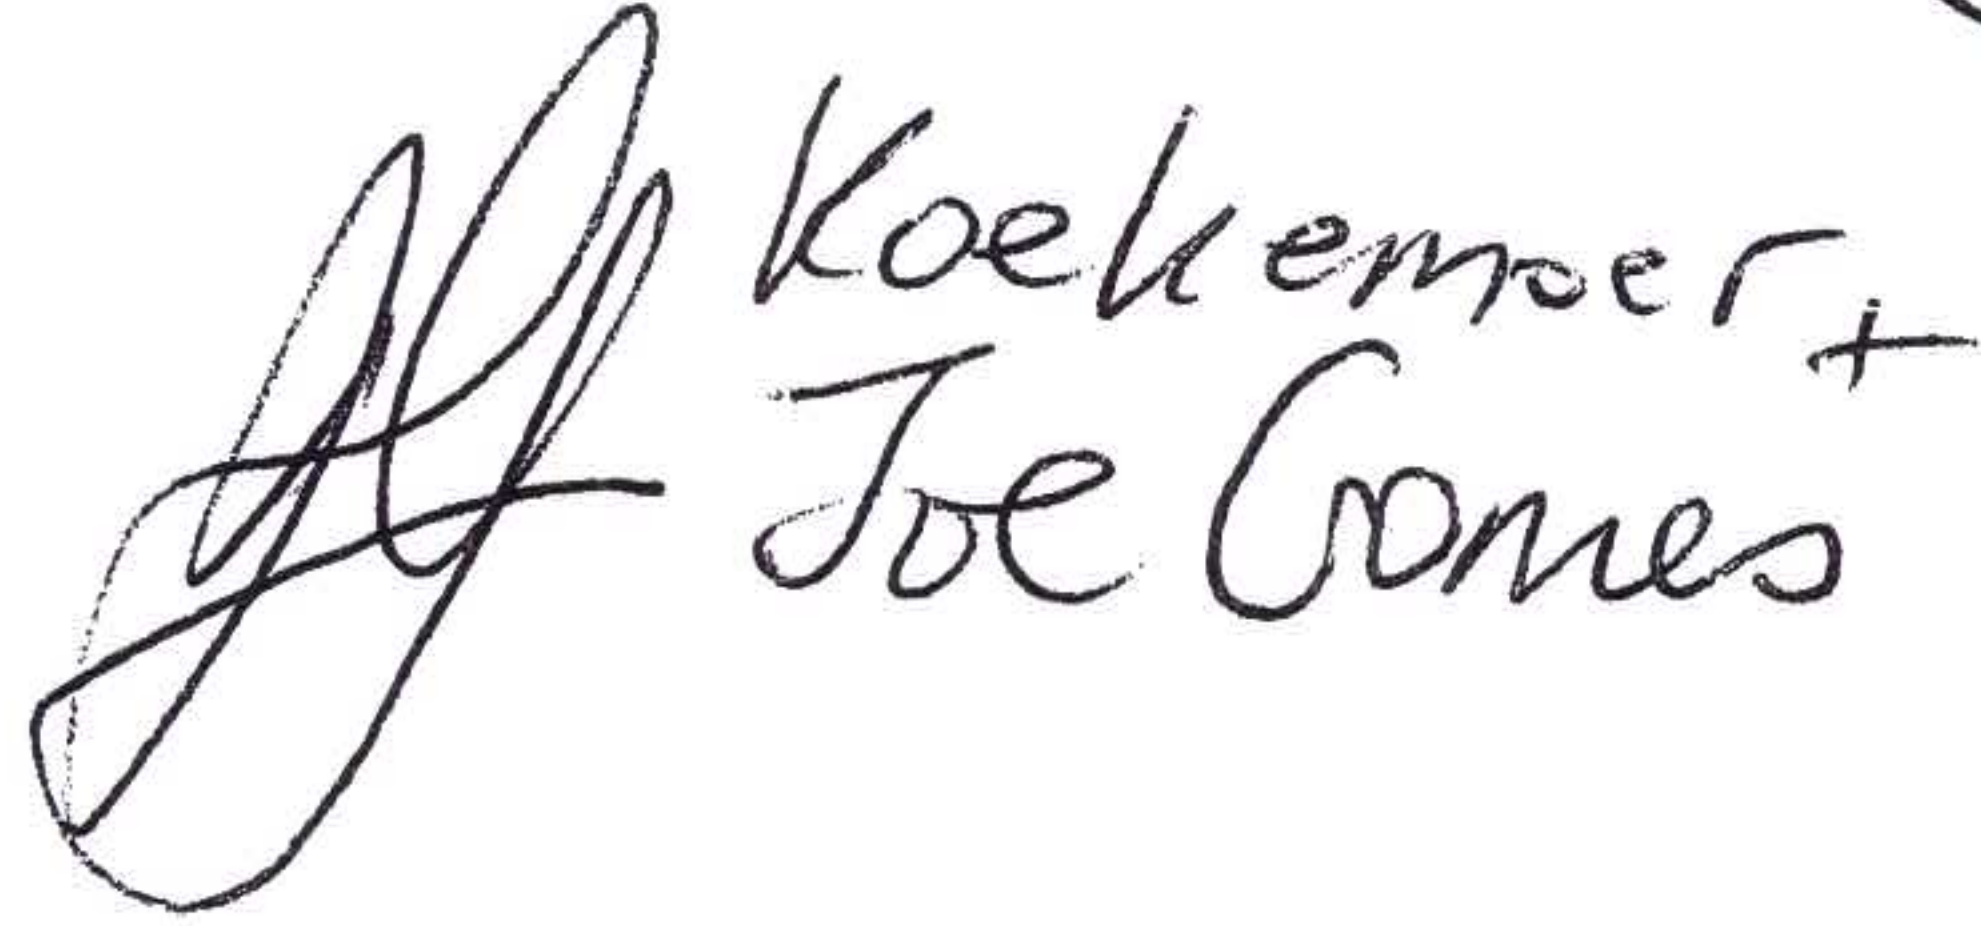 Koekemoer +
Joe Gomes